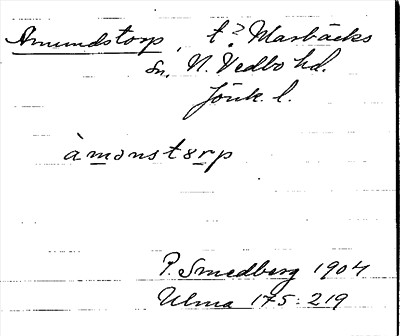 Amundstorp, t? Marbäcks
sn, N. Vedbo hd.
Jönk. l.
àmɷnstɷrp
P. Smedberg 1904
Ulma 175:219